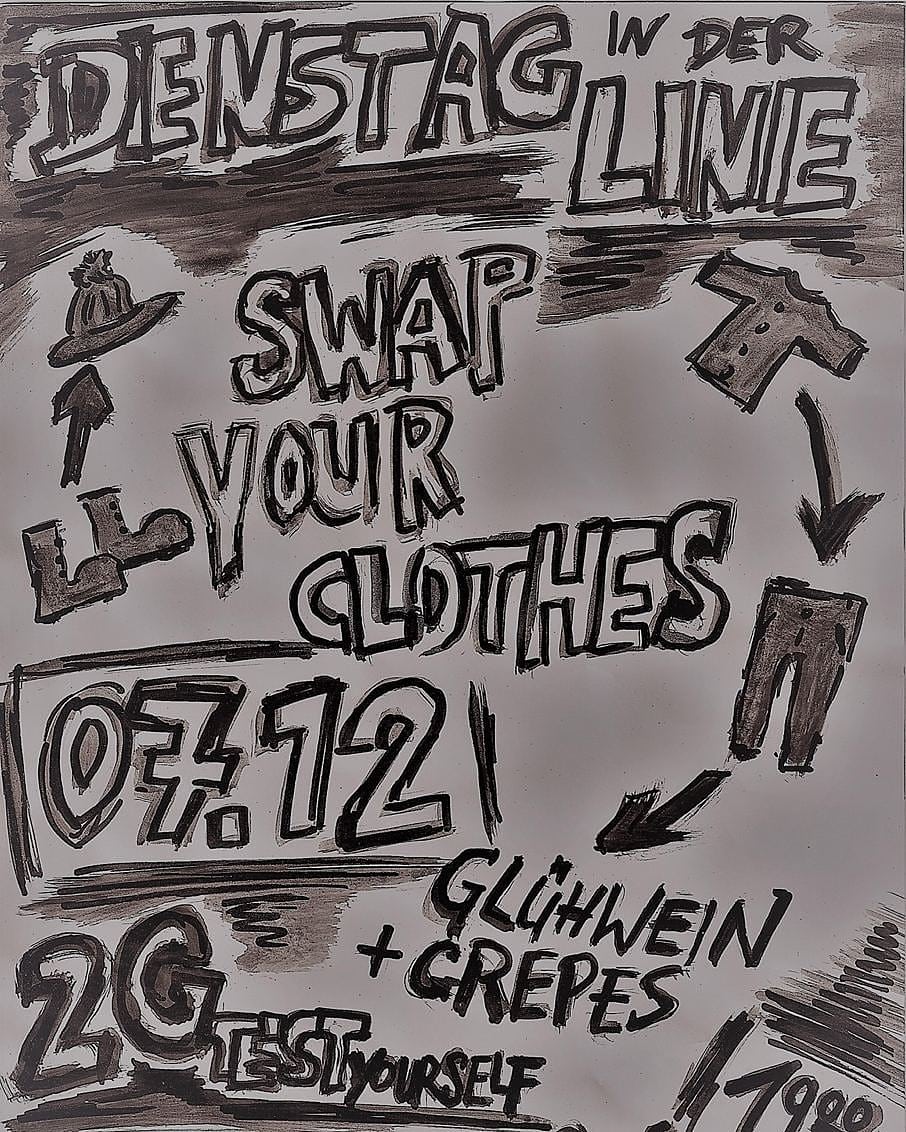 DIENSTAG IN DER
LINIE
SWAP
YOUR
CLOTHES
07.12
GLÜHWEIN
+ CREPES
2G TEST YOURSELF
1900